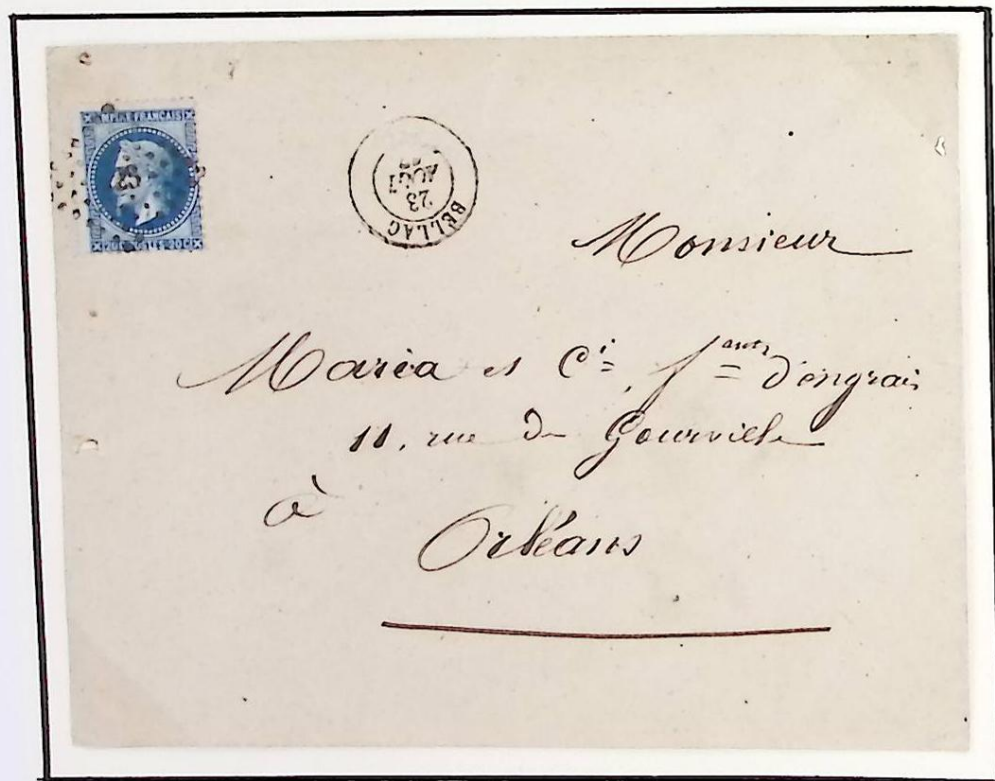 EMPIRE FRANCAIS
POSTES 20 C
BELLAC
23
AOUT
Monsieur
Maréa et Cie fants d'engrais
11, rue de Gourville
à
Orléans